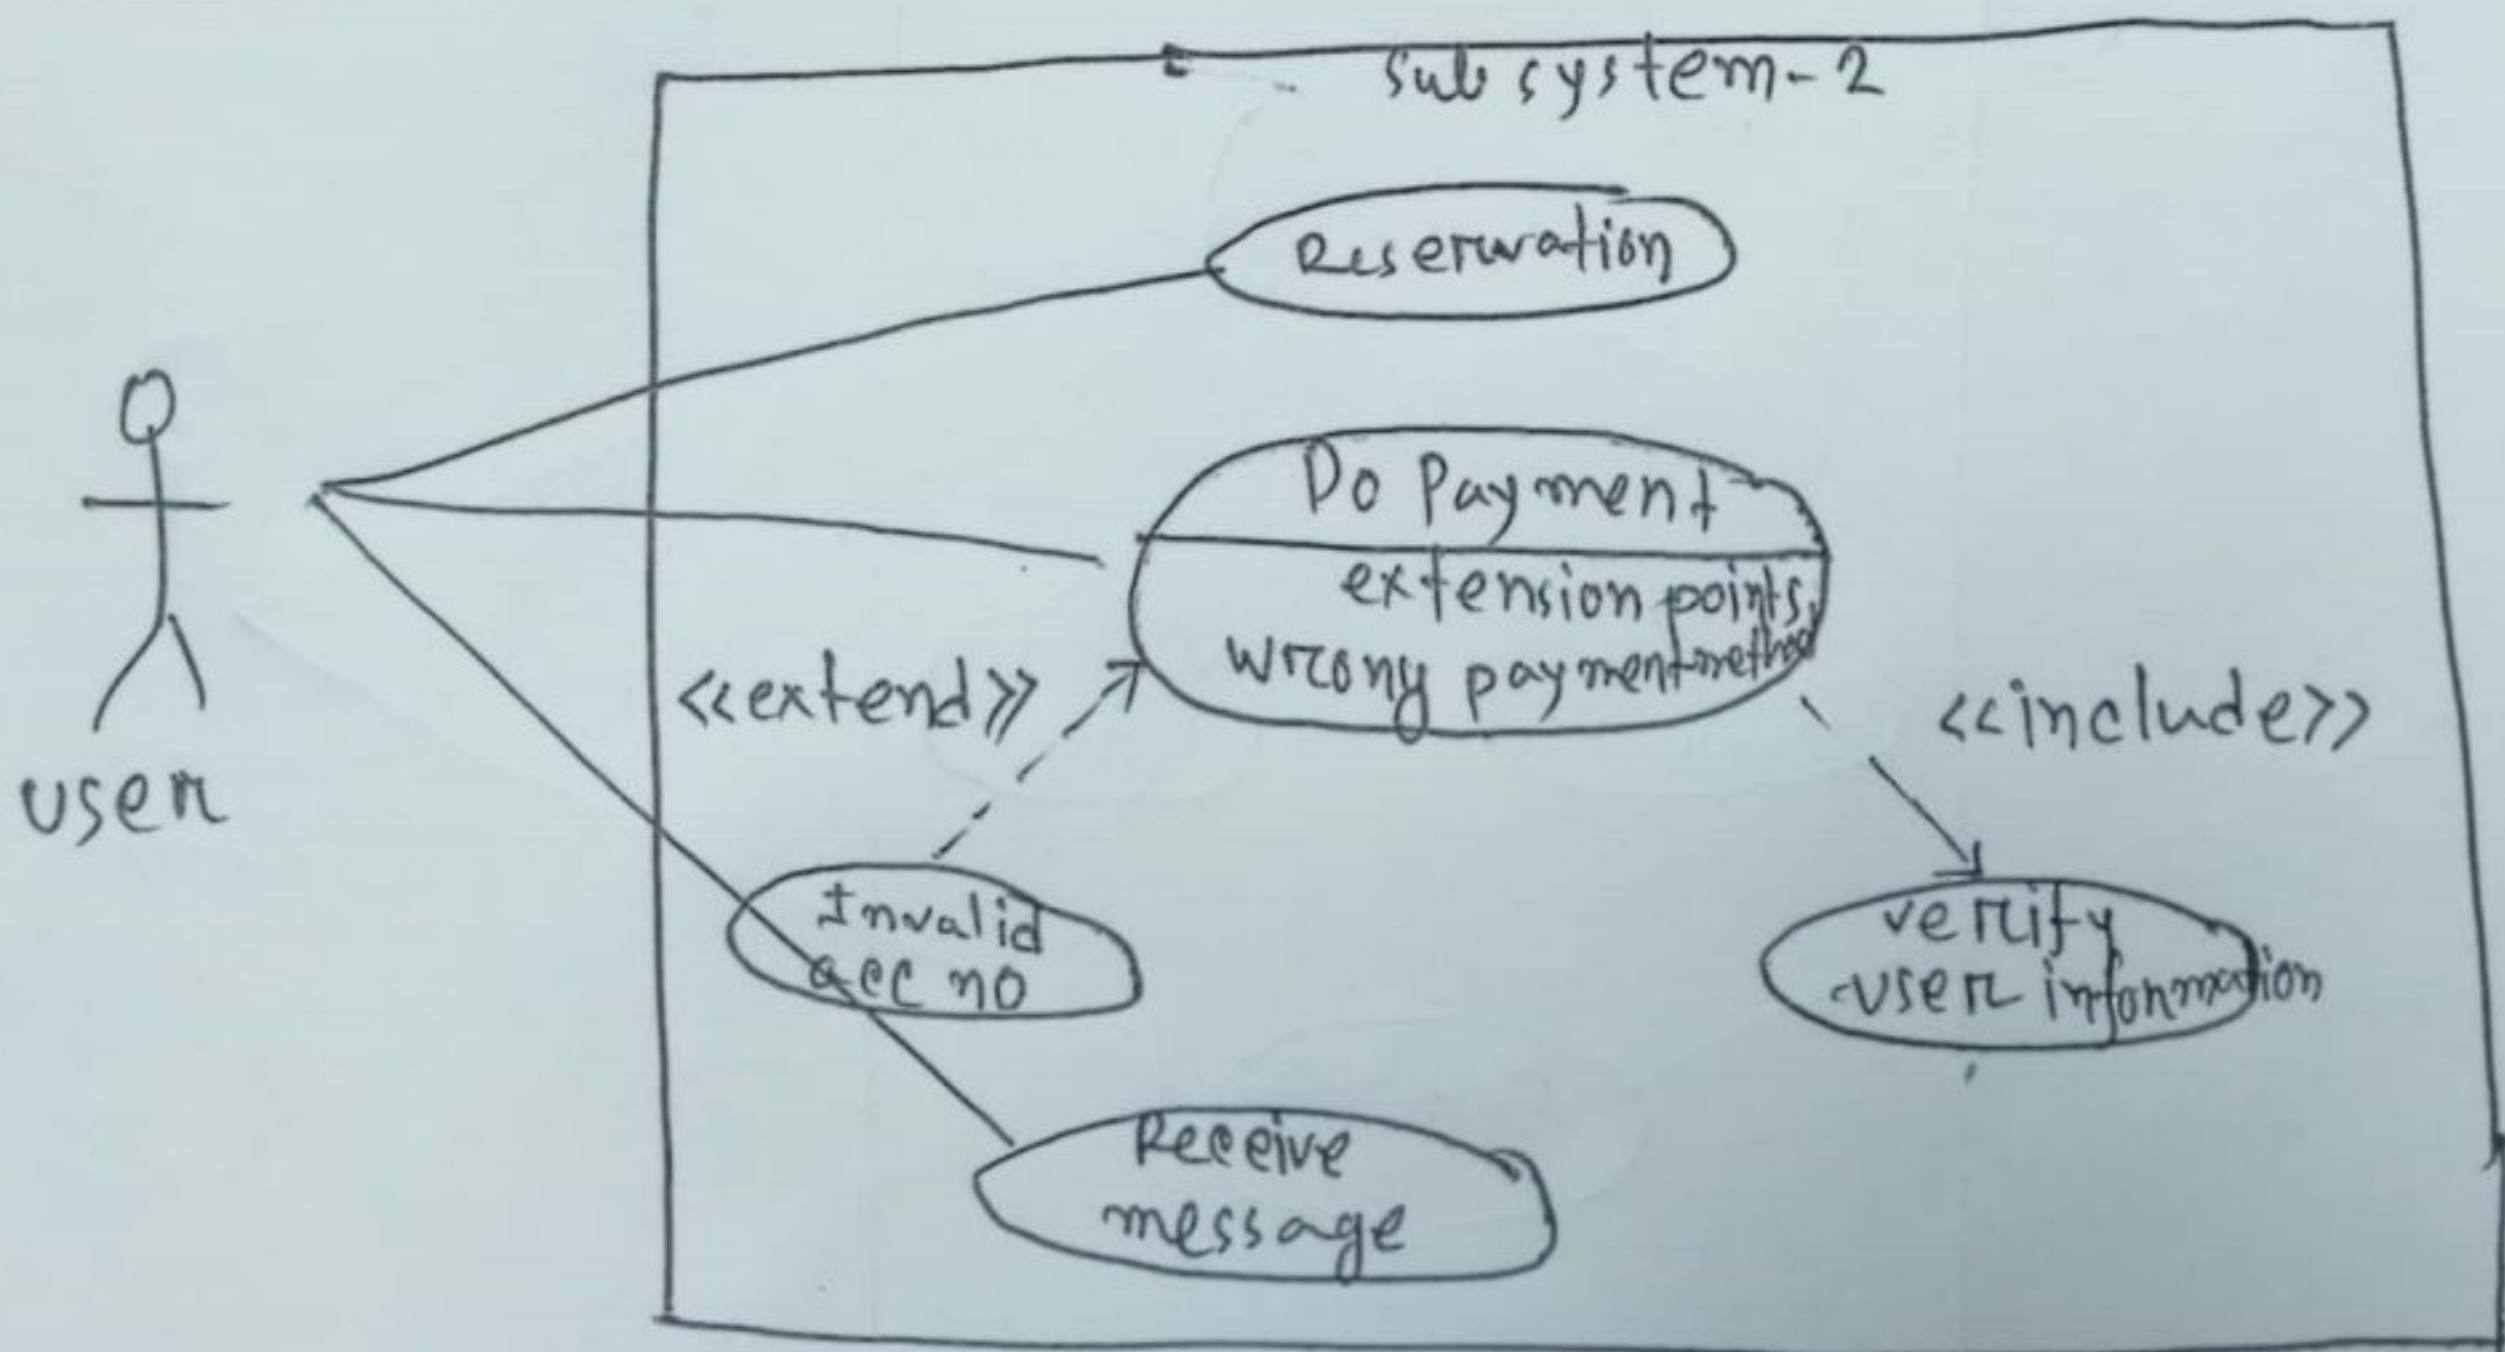 Sub system-2
Reservation
Do Payment
extension points,
Wrong payment method
<<extend>>
<<include>>
user
Invalid
acc no
verify
user information
Receive
message